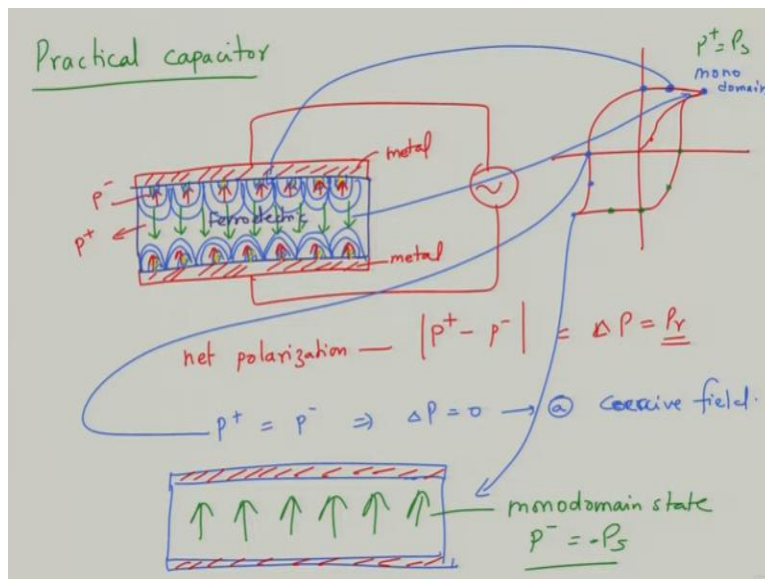 Practical capacitor
P⁺ = Ps
mono
domain
metal
P⁻
Ferroelectric
P⁺
metal
net polarization — |P⁺ - P⁻| = ΔP = Pr
P⁺ = P⁻ ⇒ ΔP = 0 → @ coercive field.
monodomain state
P⁻ = -Ps